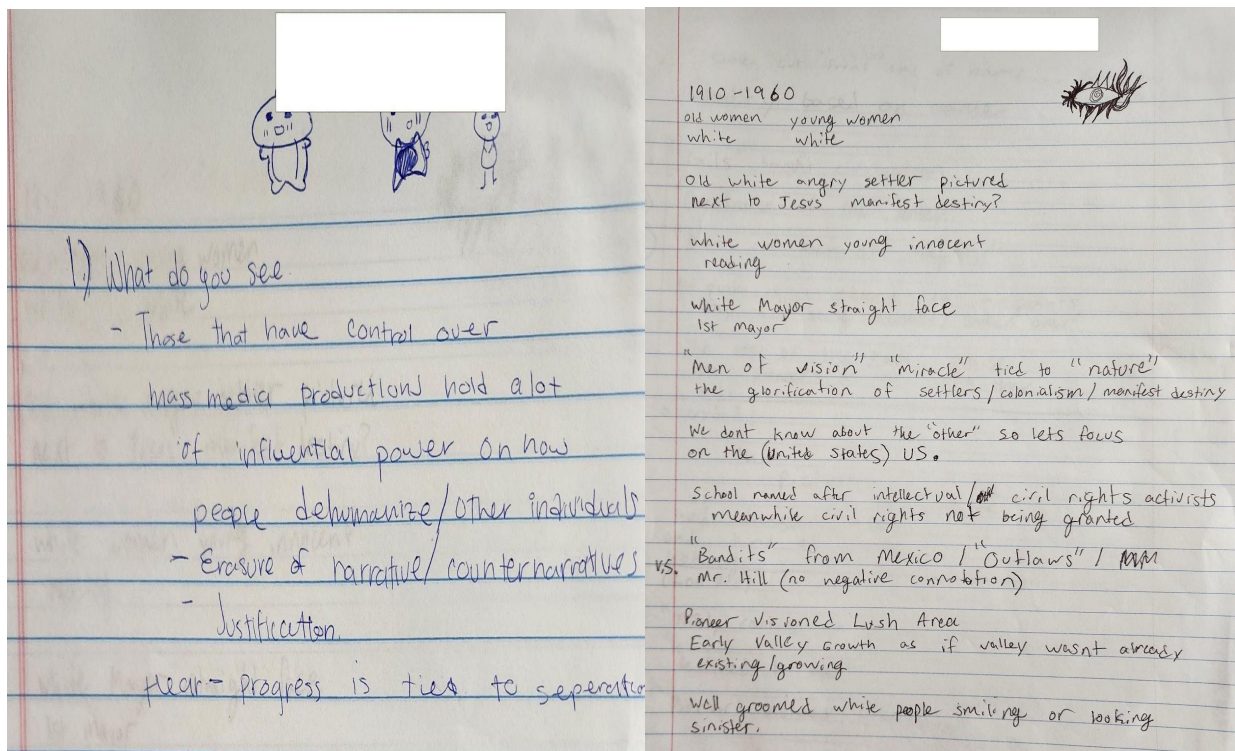 1.) What do you see.
- Those that have control over
mass media productions hold alot
of influential power on how
people dehumanize/other individuals
- Erasure of narrative/counternarratives
- Justification.
Hear - progress is tied to seperatio
1910-1960
old women young women
white white
Old white angry settler pictured
next to Jesus manifest destiny?
white women young innocent
reading
white Mayor straight face
1st mayor
"Men of vision" "miracle" tied to "nature"
the glorification of settlers/colonialism/manifest destiny
We dont know about the "other" so lets focus
on the (united states) US.
School named after intellectual/ civil rights activists
meanwhile civil rights not being granted
"Bandits" from Mexico / "Outlaws" /
v.s. Mr. Hill (no negative connotation)
Pioneer visioned Lush Area
Early Valley Growth as if valley wasnt already
existing/growing
Well groomed white people smiling or looking
sinister.